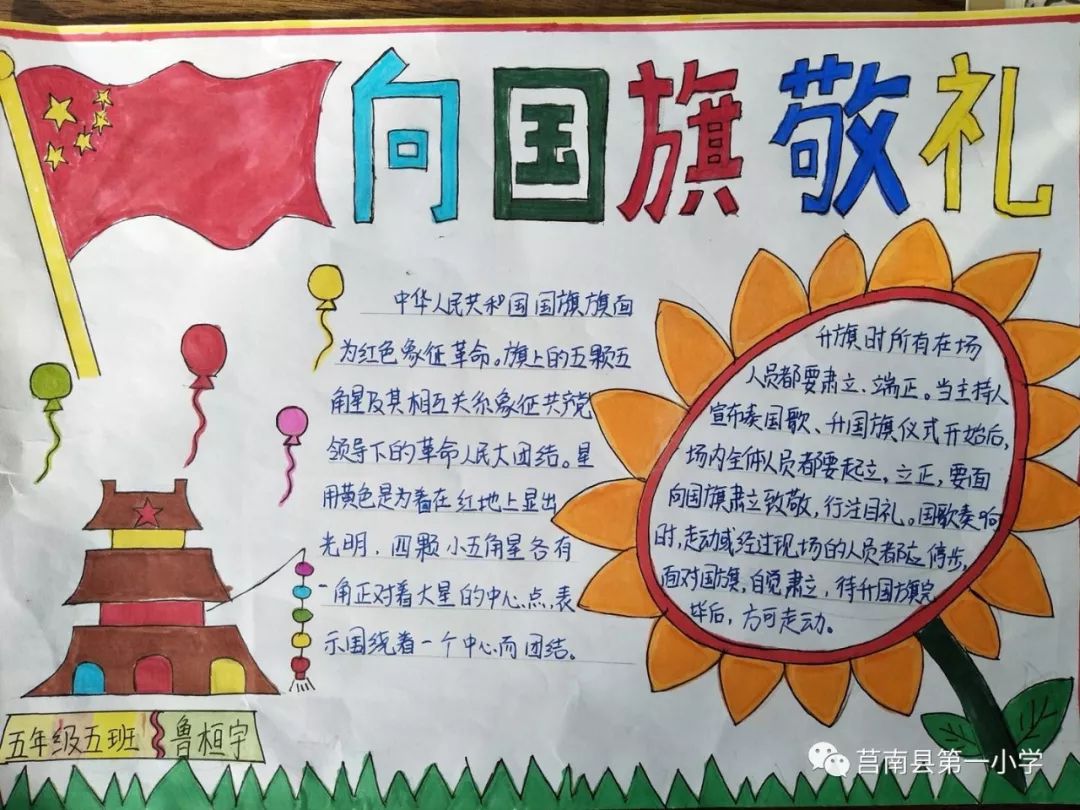 向国旗敬礼
中华人民共和国国旗旗面
为红色象征革命。旗上的五颗五
角星及其相互关系象征共产党
领导下的革命人民大团结。星
用黄色是为着在红地上显出
光明，四颗小五角星各有
一角正对着大星的中心点，表
示围绕着一个中心而团结。
升旗时所有在场
人员都要肃立、端正。当主持人
宣布奏国歌、升国旗仪式开始后，
场内全体人员都要起立，立正，要面
向国旗肃立致敬，行注目礼。国歌奏响
时，走动或经过现场的人员都应停步，
面对国旗，自觉肃立，待升国旗完
毕后，方可走动。
五年级五班 鲁桓宇
莒南县第一小学